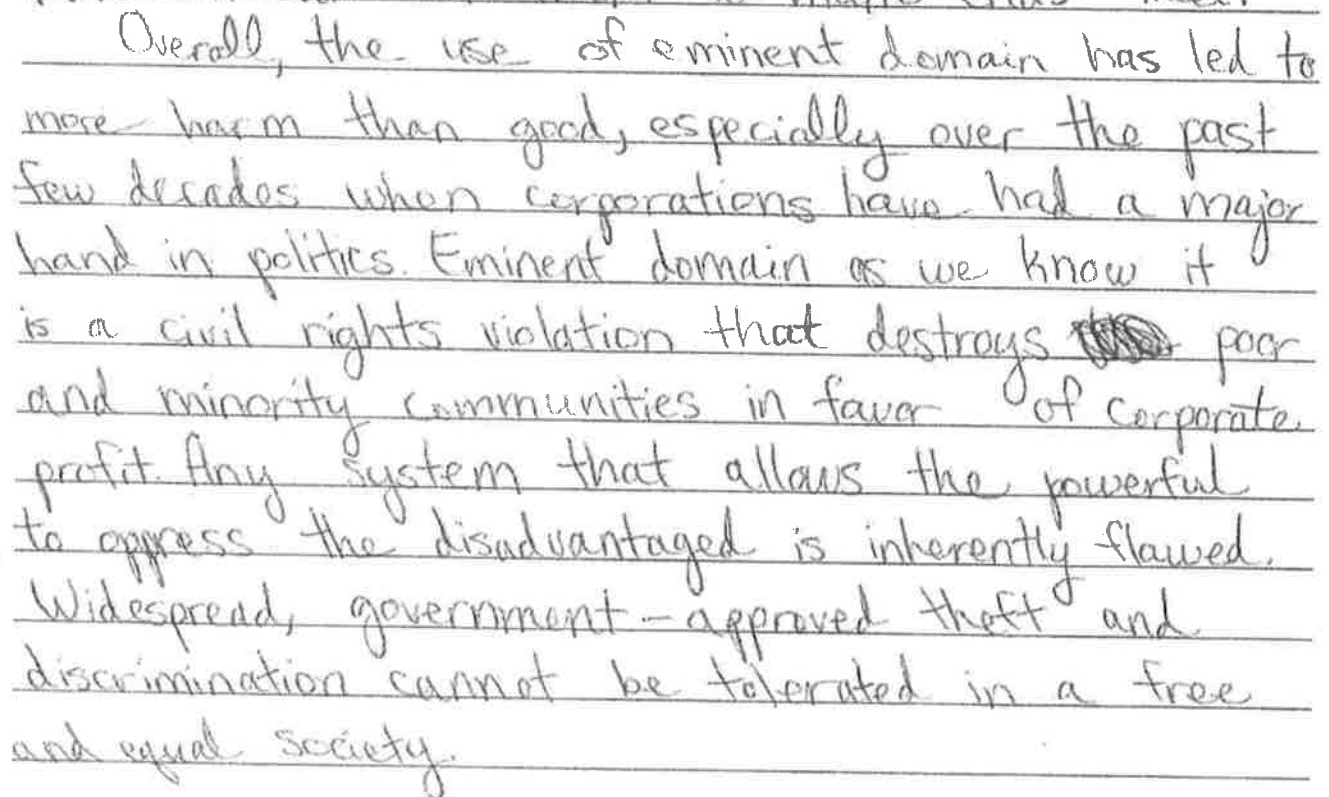 Overall, the use of eminent domain has led to
more harm than good, especially over the past
few decades when corporations have had a major
hand in politics. Eminent domain as we know it
is a civil rights violation that destroys poor
and minority communities in favor of corporate
profit. Any system that allows the powerful
to oppress the disadvantaged is inherently flawed.
Widespread, government-approved theft and
discrimination cannot be tolerated in a free
and equal society.